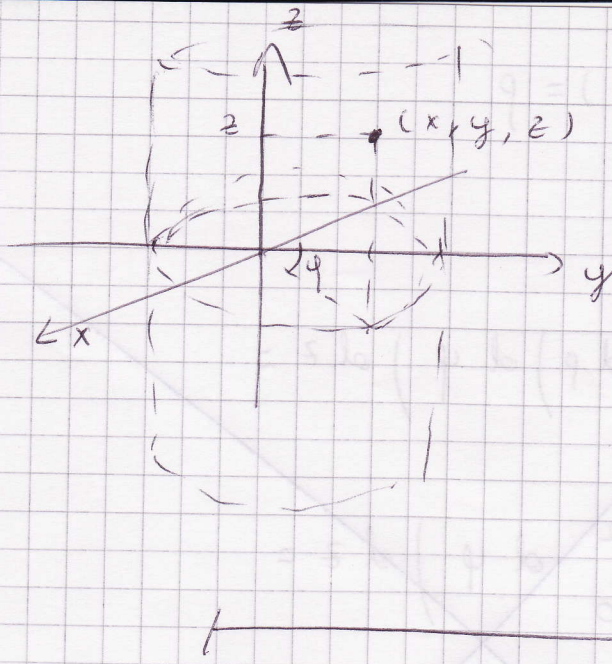 z
z (x, y, z)
φ
y
x